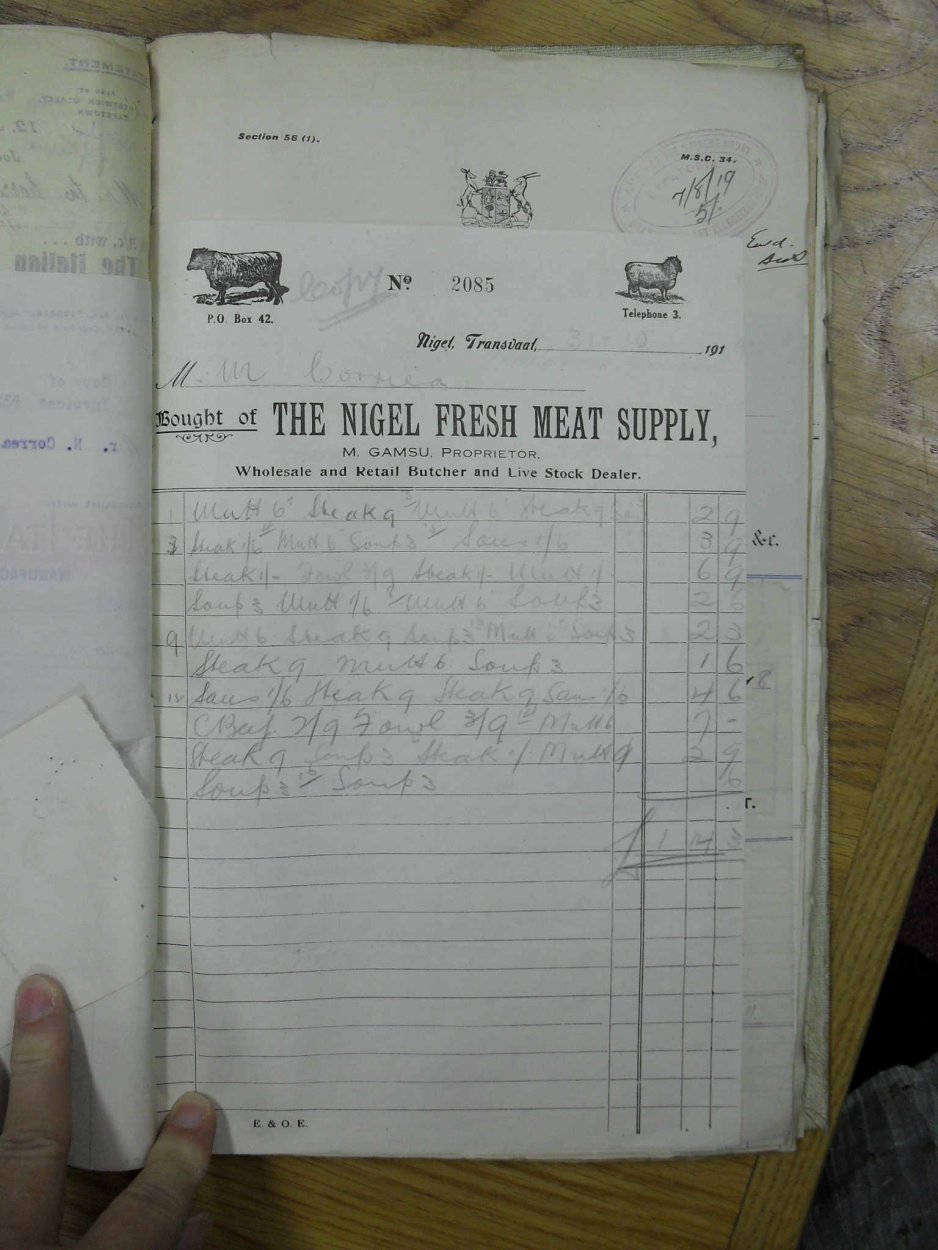 Section 56 (1).
M.S.C. 34.
7/8/19
5/-
Copy
Nº 2085
P.O. Box 42.
Telephone 3.
Nigel, Transvaal, 31-10 191
M. M Correa
Bought of THE NIGEL FRESH MEAT SUPPLY,
M. GAMSU, PROPRIETOR,
Wholesale and Retail Butcher and Live Stock Dealer.
1 Mutt 6 Steak 9 Mutt 6 Steak 9 2 9
3 Steak 1/6 Mutt 6 Soup 3 Saus 1/6 3 9
Steak 1/- Fowl 3/9 Steak 1/- Mutt 1/- 6 9
Soup 3 Mutt 1/6 Mutt 6 Soup 3 2 6
9 Mutt 6 Steak 9 Soup 3 Mutt 6 Soup 3 2 3
Steak 9 Mutt 6 Soup 3 1 6
Saus 1/6 Steak 9 Steak 9 Saus 1/6 4 6
C Beef 2/9 Fowl 3/9 Mutt 6 7 -
Steak 9 Soup 3 Steak 1/ Mutt 9 2 9
Soup 3 Soup 3 6
£ 1 14 3
E. & O. E.
&c.
STATEMENT.
The Italian
r. M. Correa